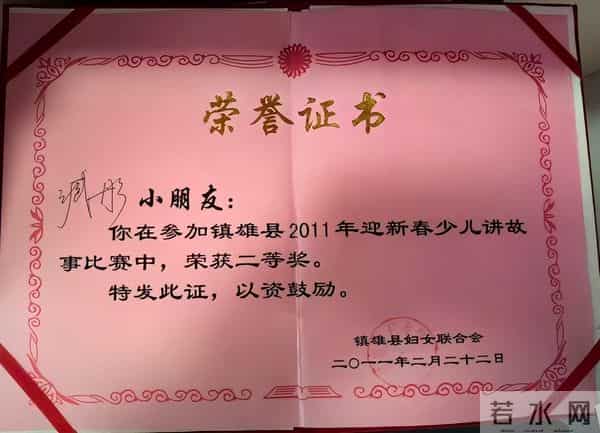 荣誉证书
臧彤 小朋友：
你在参加镇雄县2011年迎新春少儿讲故
事比赛中，荣获二等奖。
特发此证，以资鼓励。
镇雄县妇女联合会
二〇一一年二月二十二日
若水网